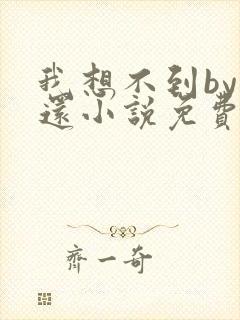 我想不到by
還小說免費
齊一奇